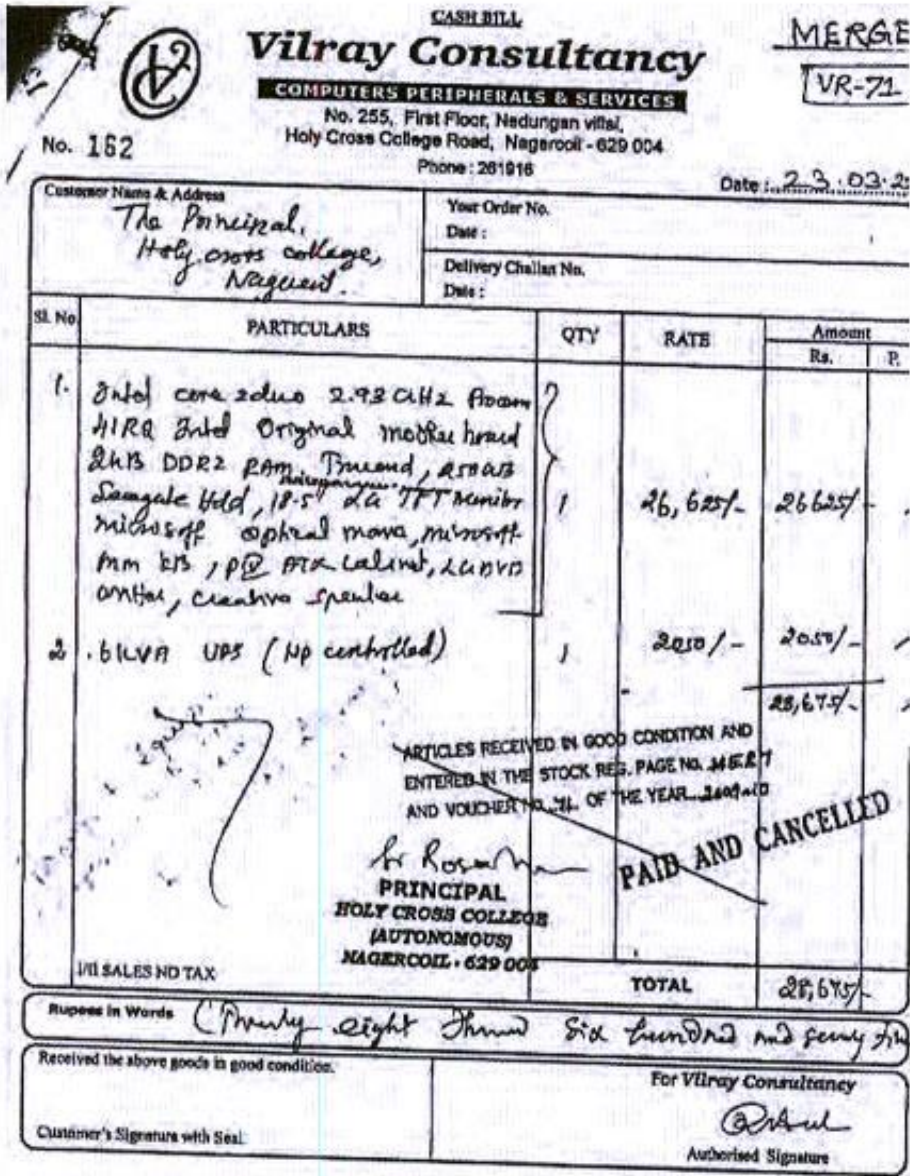 CASH BILL
MERGE
Vilray Consultancy
VR-71
COMPUTERS PERIPHERALS & SERVICES
No. 255, First Floor, Nedungan villai,
Holy Cross College Road, Nagercoil - 629 004
No. 162
Phone : 261916
Date : 23.03.2
Customer Name & Address
The Principal,
Holy cross college,
Your Order No.
Date :
Delivery Challan No.
Date :
Sl. No. PARTICULARS QTY RATE Amount
Rs. P.
1. Intel core 2duo 2.93 GHz
41RQ Intel Original mother board
2GB DDR2 RAM, 250GB
Seagate Hdd, 18.5" LG TFT Monitor 1 26,625/- 26625/-
microsoft optical mouse, microsoft
mm KB, ATX cabinet, LG DVD
creative speaker
2 .6KVA UPS (μp controlled) 1 2050/- 2050/-
28,675/-
ARTICLES RECEIVED IN GOOD CONDITION AND
ENTERED IN THE STOCK REG. PAGE NO.
AND VOUCHER NO. 71 OF THE YEAR 2009-10
PAID AND CANCELLED
PRINCIPAL
HOLY CROSS COLLEGE
(AUTONOMOUS)
NAGERCOIL - 629 004
I/II SALES NO TAX
TOTAL 28,675/-
Rupees in Words (Twenty eight Six hundred and
Received the above goods in good condition.
For Vilray Consultancy
Customer's Signature with Seal
Authorised Signature